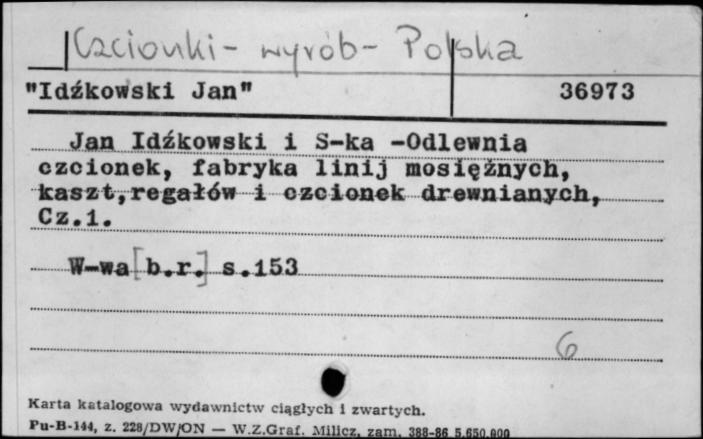 Czcionki - wyrób - Polska
"Idźkowski Jan" 36973
Jan Idźkowski i S-ka -Odlewnia
czcionek, fabryka linij mosiężnych,
kaszt,regałów i czcionek drewnianych,
Cz.1.
W-wa [b.r.] s.153
6
Karta katalogowa wydawnictw ciągłych i zwartych.
Pu-B-144, z. 228/DW/ON — W.Z.Graf. Milicz, zam. 388-86 5.650.000